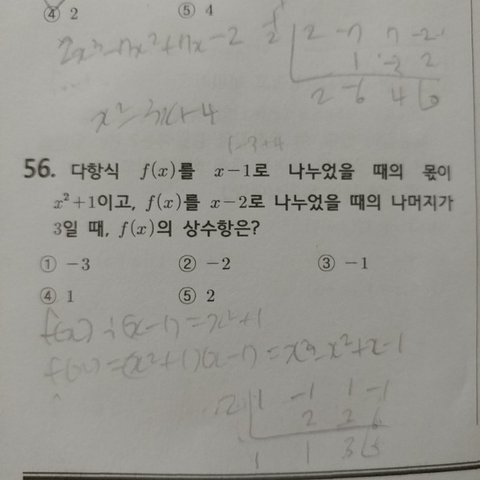 ④ 2 ⑤ 4
2x³-7x²+7x-2 1/2 2 -7 7 -2
1 -3 2
2 -6 4 0
x²-3x+4
1-3+4
56. 다항식 f(x)를 x-1로 나누었을 때의 몫이
x²+1이고, f(x)를 x-2로 나누었을 때의 나머지가
3일 때, f(x)의 상수항은?
① -3 ② -2 ③ -1
④ 1 ⑤ 2
f(x)÷(x-1)=x²+1
f(x)=(x²+1)(x-1)=x³-x²+x-1
2 1 -1 1 -1
2 2 6
1 1 3 5